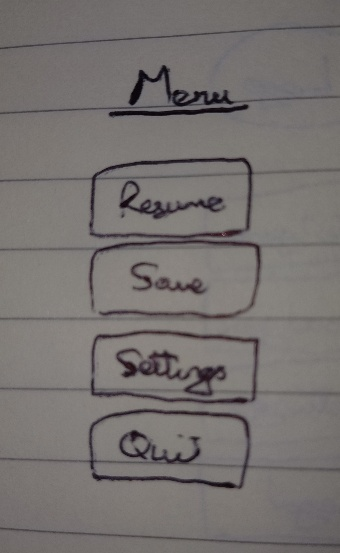 Menu
Resume
Save
Settings
Quit